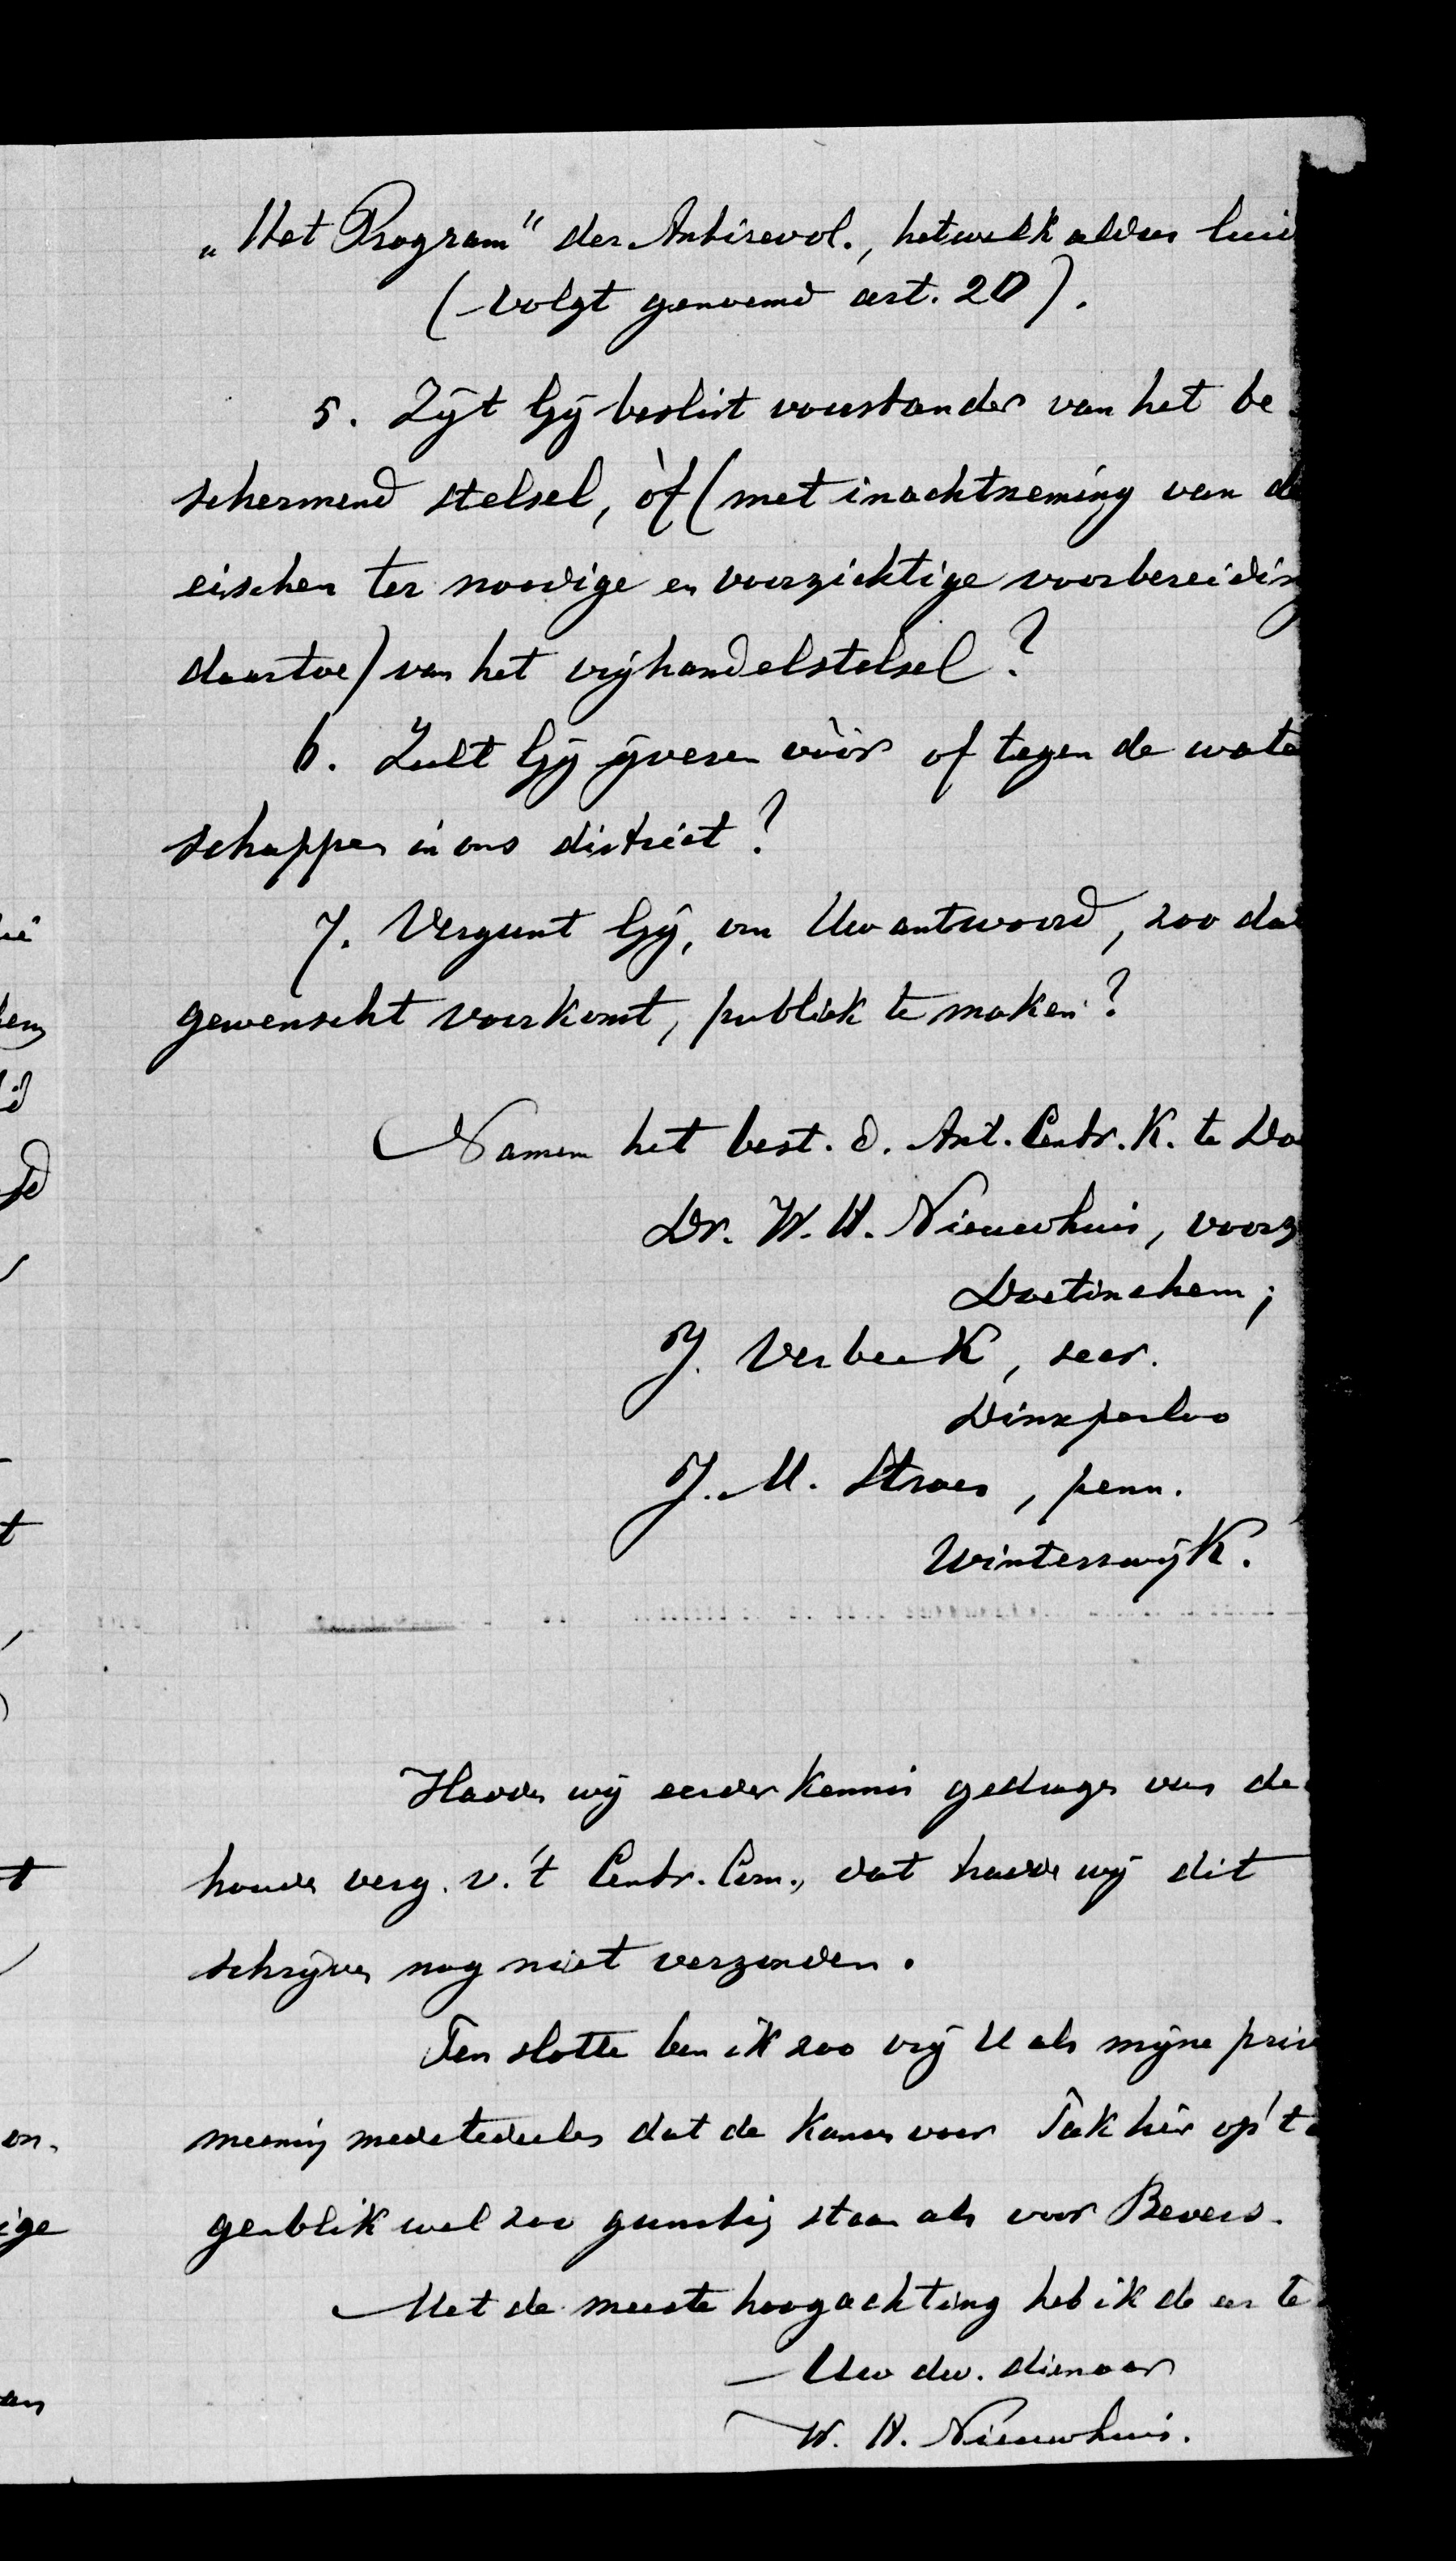 „Het Program" der Antirevol., hetwelk aldus luid
(volgt genoemd art. 20).
5. Zijt Gij beslist voorstander van het be-
schermend stelsel, òf (met inachtneming van de
eischen ter noodige en voorzichtige voorbereiding
daartoe) van het vrijhandelstelsel?
6. Zult Gij ijveren vóór of tegen de wate
schappen in ons district?
7. Vergunt Gij, om Uw antwoord, zoo dat
gewenscht voorkomt, publiek te maken?
Namens het best. d. Ant. Centr. K. te Do
Dr. W. H. Nieuwhuis, voorz
Doetinchem;
J. Verbeek, secr.
Dinxperloo
J. M. Straes, penn.
Winterswijk.
Hadden wij eerder kennis gedragen van de
houden verg. v. 't Centr. Com., dat hadden wij dit
schrijven nog niet verzonden.
Ten slotte ben ik zoo vrij U als mijne priv
meening medetedeelen dat de kansen voor Tak hier op 't o
genblik wel zoo gunstig staan als voor Bevers.
Met de meeste hoogachting heb ik de eer te
Uw dw. dienaar
W. H. Nieuwhuis.